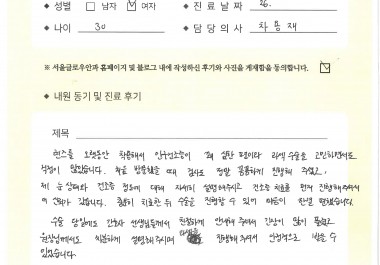 ◆ 성별 □ 남자 ☑ 여자 ◆ 진료 날짜 26.
◆ 나이 30 ◆ 담당의사 차흥재
※ 서울글로우안과 홈페이지 및 블로그 내에 작성하신 후기와 사진을 게재함을 동의합니다. ☑
◆ 내원 동기 및 진료 후기
제목
렌즈를 오랫동안 착용해서 안구건조증이 꽤 심한 편이라 라섹 수술을 고민하면서도
걱정이 많았습니다. 처음 방문했을 때 검사도 정말 꼼꼼하게 진행해 주셨고,
제 눈 상태와 건조증 정도에 대해 자세히 설명해주시고 건조증 치료를 먼저 진행해주셔서
더 신뢰가 갔습니다. 충분히 치료한 뒤 수술을 진행할 수 있어 마음이 한결 편했습니다.
수술 당일에도 간호사 선생님들께서 친절하게 안내해 주셔서 긴장이 많이 풀렸고
원장님께서도 차분하게 설명해주시며 진행해 주셔서 안정적으로 받을 수
있었습니다.